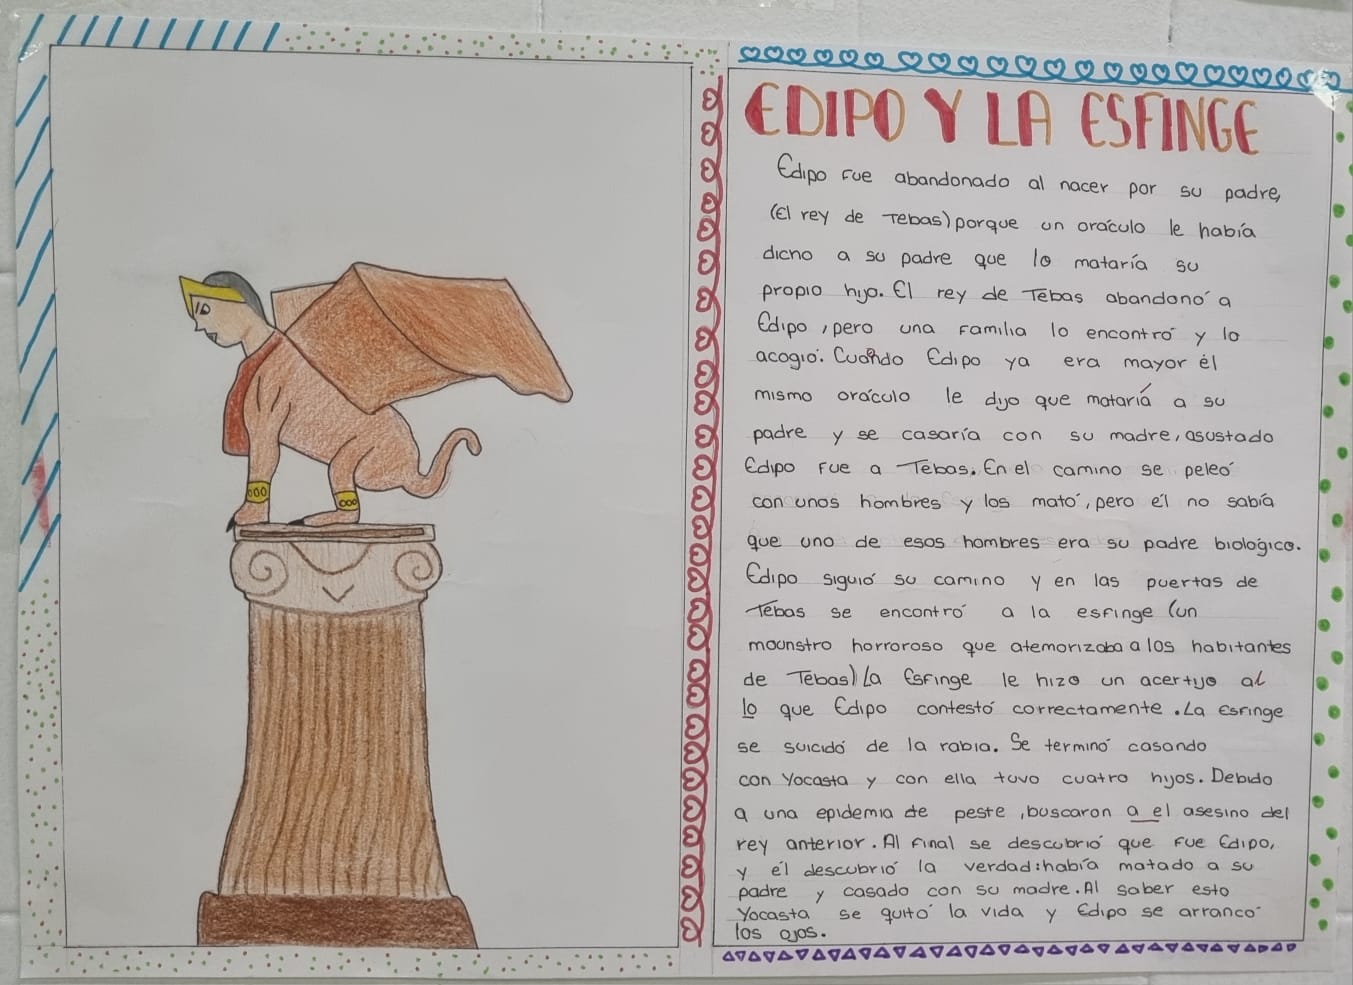 EDIPO Y LA ESFINGE
Edipo fue abandonado al nacer por su padre,
(El rey de Tebas) porque un oráculo le había
dicho a su padre que lo mataría su
propio hijo. El rey de Tebas abandonó a
Edipo, pero una familia lo encontró y lo
acogió. Cuando Edipo ya era mayor él
mismo oráculo le dijo que mataría a su
padre y se casaría con su madre, asustado
Edipo fue a Tebas. En el camino se peleó
con unos hombres y los mató, pero él no sabía
que uno de esos hombres era su padre biológico.
Edipo siguió su camino y en las puertas de
Tebas se encontró a la esfinge (un
mounstro horroroso que atemorizaba a los habitantes
de Tebas) La Esfinge le hizo un acertijo al
lo que Edipo contestó correctamente. La Esfinge
se suicidó de la rabia. Se terminó casando
con Yocasta y con ella tuvo cuatro hijos. Debido
a una epidemia de peste, buscaron a el asesino del
rey anterior. Al final se descubrió que fue Edipo,
y él descubrió la verdad: había matado a su
padre y casado con su madre. Al saber esto
Yocasta se quitó la vida y Edipo se arrancó
los ojos.